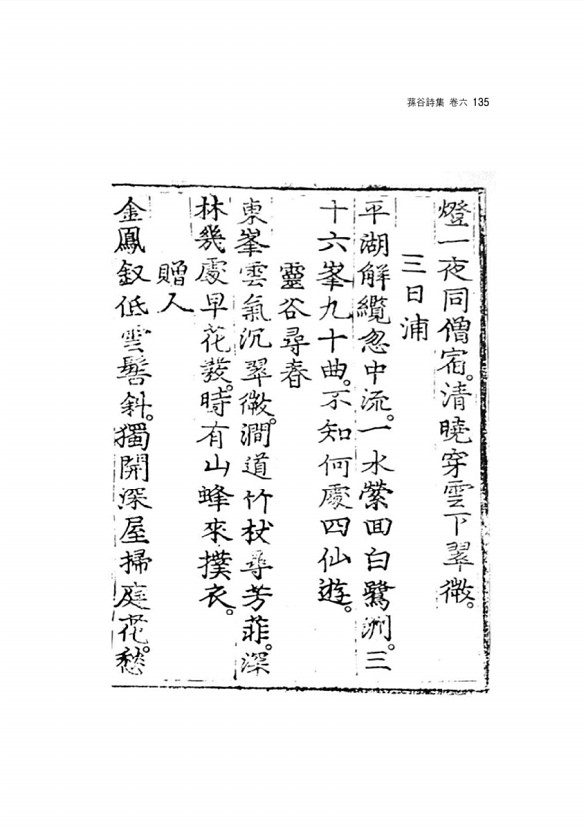 蓀谷詩集 卷六 135
燈一夜同僧宿。清曉穿雲下翠微。
三日浦
平湖解纜忽中流。一水縈回白鷺洲。三
十六峯九十曲。不知何處四仙遊。
靈谷尋春
東峯雲氣沉翠微。澗道竹杖尋芳菲。深
林幾處早花發。時有山蜂來撲衣。
贈人
金鳳釵低雲髻斜。獨開深屋掃庭花。愁